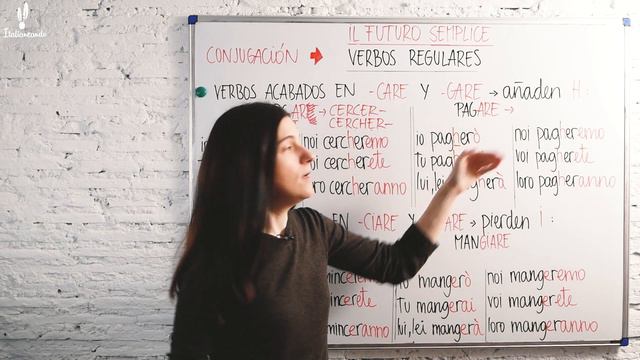 Italianeando
IL FUTURO SEMPLICE
CONJUGACIÓN → VERBOS REGULARES
VERBOS ACABADOS EN -CARE Y -GARE → añaden H:
ARE → CERCER- PAGARE →
CERCHER-
noi cercheremo io pagherò noi pagheremo
cercherete tu voi pagherete
cercheranno lui, lei loro pagheranno
EN -CIARE Y pierden i:
MANGIARE
mangerò noi mangeremo
tu mangerai voi mangerete
lui, lei mangerà loro mangeranno